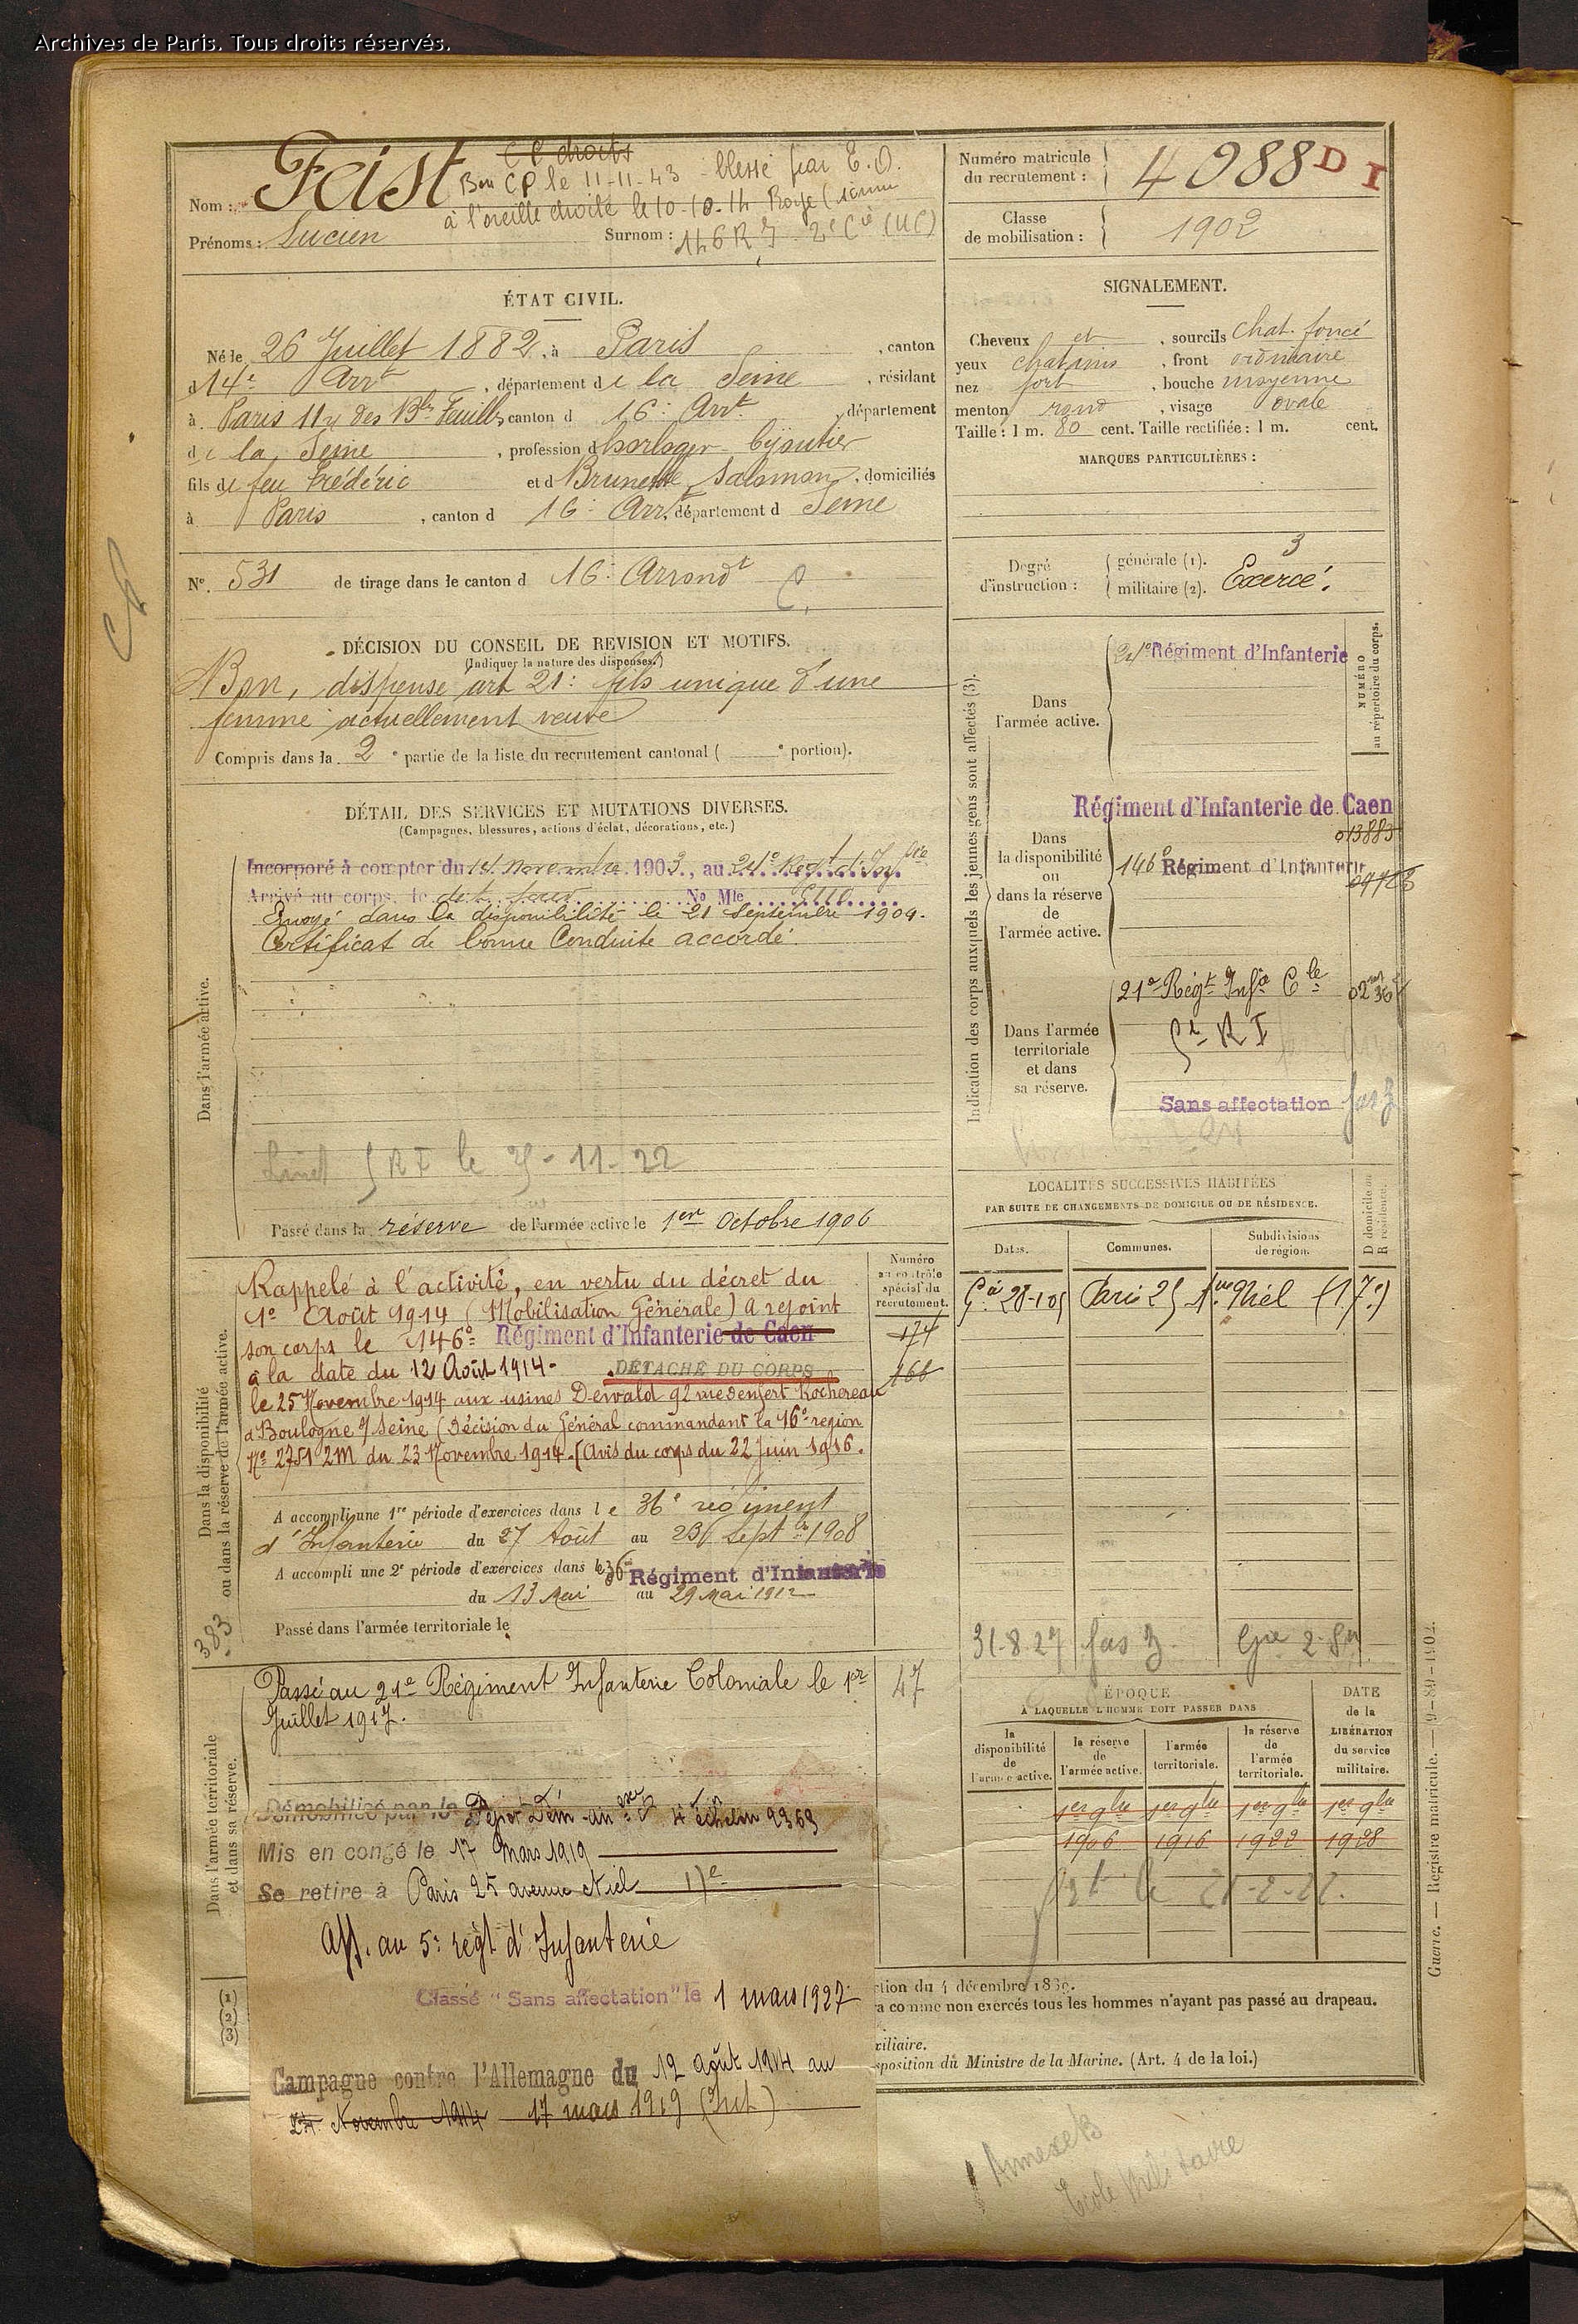 Archives de Paris. Tous droits réservés.
Nom : Faist
CP droits
Bon CP le 11-11-43 - blessé par E.O.
à l'oreille droite le 10-10-14 Roye (Somme
146 RI 2e Cie (UC)
Prénoms : Lucien
Surnom :
Numéro matricule
du recrutement :
4988 D I
Classe
de mobilisation :
1902
ÉTAT CIVIL.
Né le 26 Juillet 1882, à Paris , canton
d 14e Arrt , département de la Seine , résidant
à Paris 11 des Bles Feuilles canton d 16e Arrt , département
de la Seine , profession d horloger - bijoutier
fils de feu Frédéric et d Brunette Salomon , domiciliés
à Paris , canton d 16e Arrt, département d Seine
SIGNALEMENT.
Cheveux et , sourcils chat. foncé
yeux chatains , front ordinaire
nez fort , bouche moyenne
menton rond , visage ovale
Taille : 1 m. 80 cent. Taille rectifiée : 1 m. cent.
MARQUES PARTICULIÈRES :
No. 531 de tirage dans le canton d 16e Arrondt
Degré
d'instruction :
générale (1). 3
militaire (2). Exercé.
DÉCISION DU CONSEIL DE REVISION ET MOTIFS.
(Indiquer la nature des dispenses.)
Bon, dispense art 21: fils unique d'une
femme actuellement veuve
Compris dans la 2e partie de la liste du recrutement cantonal ( e portion).
Indication des corps auxquels les jeunes gens sont affectés (3).
NUMÉRO
au répertoire du corps.
Dans
l'armée active.
24e Régiment d'Infanterie
Régiment d'Infanterie de Caen
013883
Dans
la disponibilité
ou
dans la réserve
de
l'armée active.
146e Régiment d'Infanterie
Dans l'armée
territoriale
et dans
sa réserve.
21e Régt Infie Cle
5e RI
Sans affectation
DÉTAIL DES SERVICES ET MUTATIONS DIVERSES.
(Campagnes, blessures, actions d'éclat, décorations, etc.)
Dans l'armée active.
Incorporé à compter du 14 novembre 1903, au 24e Regt d'Inftie
Arrivé au corps, le dit jour No Mle
Envoyé dans la disponibilité le 21 Septembre 1904.
Certificat de bonne Conduite accordé.
5 RI le 25-11-22
Passé dans la réserve de l'armée active le 1er Octobre 1906
LOCALITÉS SUCCESSIVES HABITÉES
PAR SUITE DE CHANGEMENTS DE DOMICILE OU DE RÉSIDENCE.
Dates.
Communes.
Subdivisions
de région.
D domicile ou
R résidence.
28-1-05 Paris 25 Aue Niel (17e)
31-8-27
Dans la disponibilité
ou dans la réserve de l'armée active.
Numéro
au contrôle
spécial du
recrutement.
174
166
Rappelé à l'activité, en vertu du décret du
1e Août 1914 (Mobilisation Générale) A rejoint
son corps le 146e Régiment d'Infanterie de Caen
à la date du 12 Août 1914 - DÉTACHÉ DU CORPS
le 25 Novembre 1914 aux usines Dewald 92 rue Denfert Rochereau
à Boulogne s/ Seine (Décision du Général commandant la 16e région
No 2751 2M du 23 Novembre 1914. (Avis du corps du 22 Juin 1916.
A accompli une 1re période d'exercices dans le 36e régiment
d'Infanterie du 27 Août au 23 Septbre 1908
A accompli une 2e période d'exercices dans le 36e Régiment d'Infanterie
du 13 Mai au 29 Mai 1912
Passé dans l'armée territoriale le
383
Dans l'armée territoriale
et dans sa réserve.
Passé au 21e Régiment Infanterie Coloniale le 1er
Juillet 1917.
47
Démobilisé par le Dépôt Dém 4e échelon
Mis en congé le 17 Mars 1919
Se retire à Paris 25 avenue Niel 17e
Aff. au 5e régt d'Infanterie
Classé "Sans affectation" le 1 mars 1927
Campagne contre l'Allemagne du 12 août 1914 au
24 Novembre 1914 17 mars 1919 (Int)
ÉPOQUE
À LAQUELLE L'HOMME DOIT PASSER DANS
la
disponibilité
de
l'armée active.
la réserve
de
l'armée active.
l'armée
territoriale.
la réserve
de
l'armée
territoriale.
DATE
de la
LIBÉRATION
du service
militaire.
1er 8bre 1er 8bre 1er 8bre 1er 8bre
1906 1916 1922 1928
(1)
(2)
(3)
ction du 4 décembre 1889.
a comme non exercés tous les hommes n'ayant pas passé au drapeau.
xiliaire.
sposition du Ministre de la Marine. (Art. 4 de la loi.)
Guerre. — Registre matricule. — 9-89-1902.
Annexe
Ecole Militaire